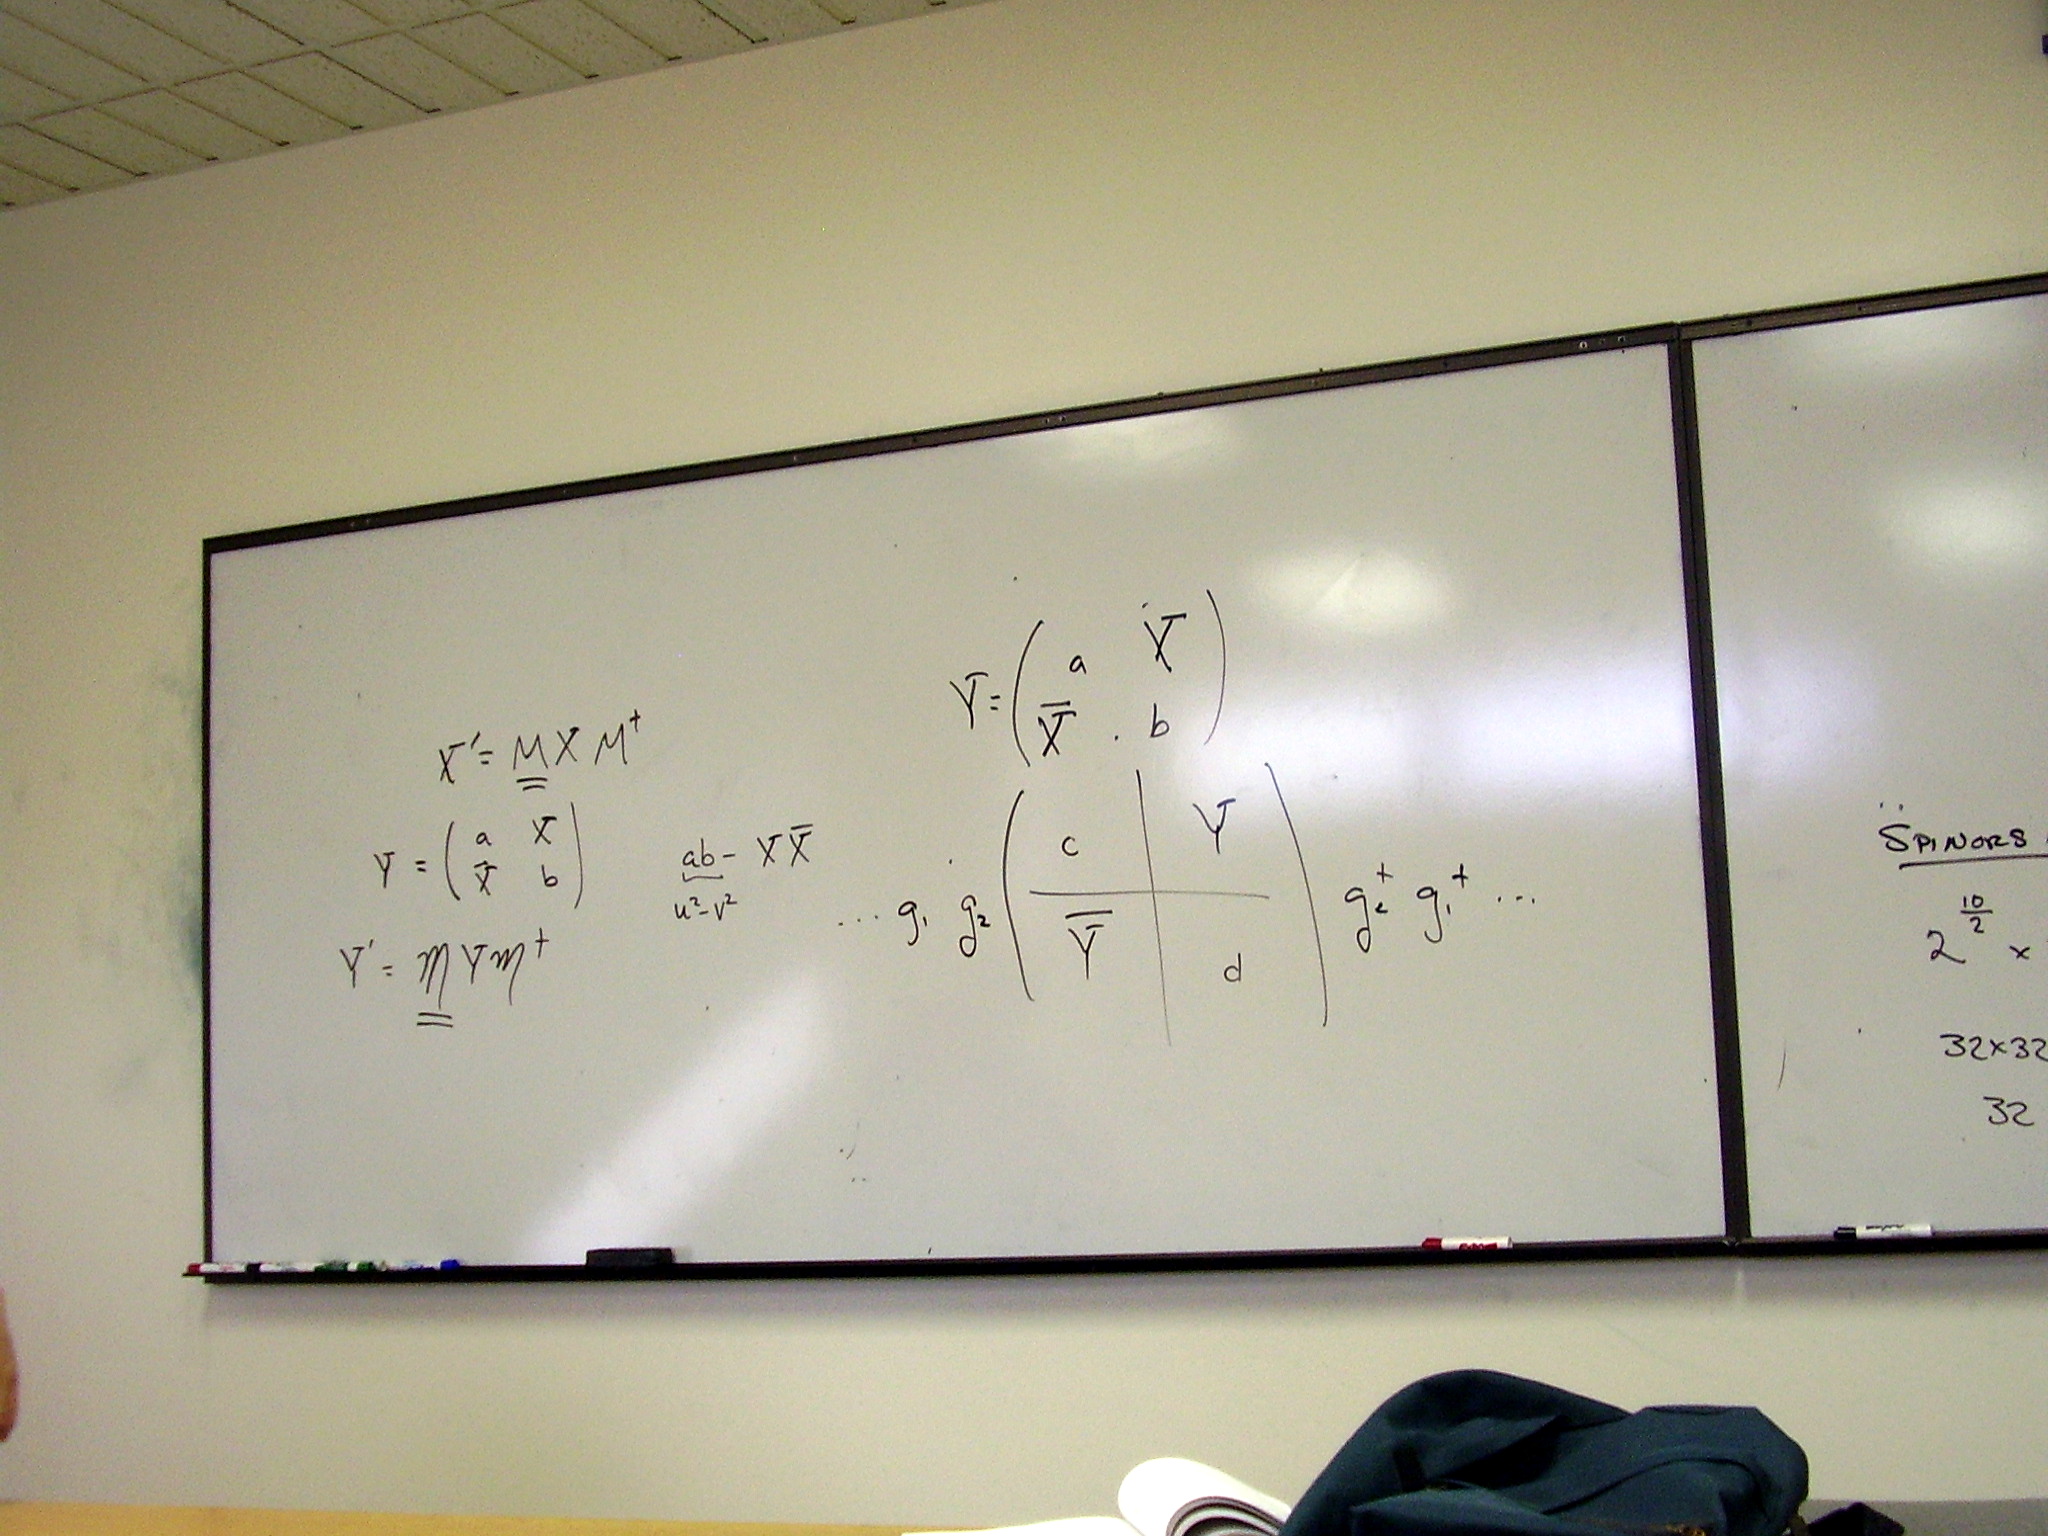 X' = M X M†
Y = ( a X
X̄ b )
ab - X X̄
u²-v²
Y' = M Y M†
Y = ( a X
X̄ b )
... g₁ g₂ ( c Y
Ȳ d ) g₂† g₁† ...
SPINORS
2^(10/2) ×
32×32
32